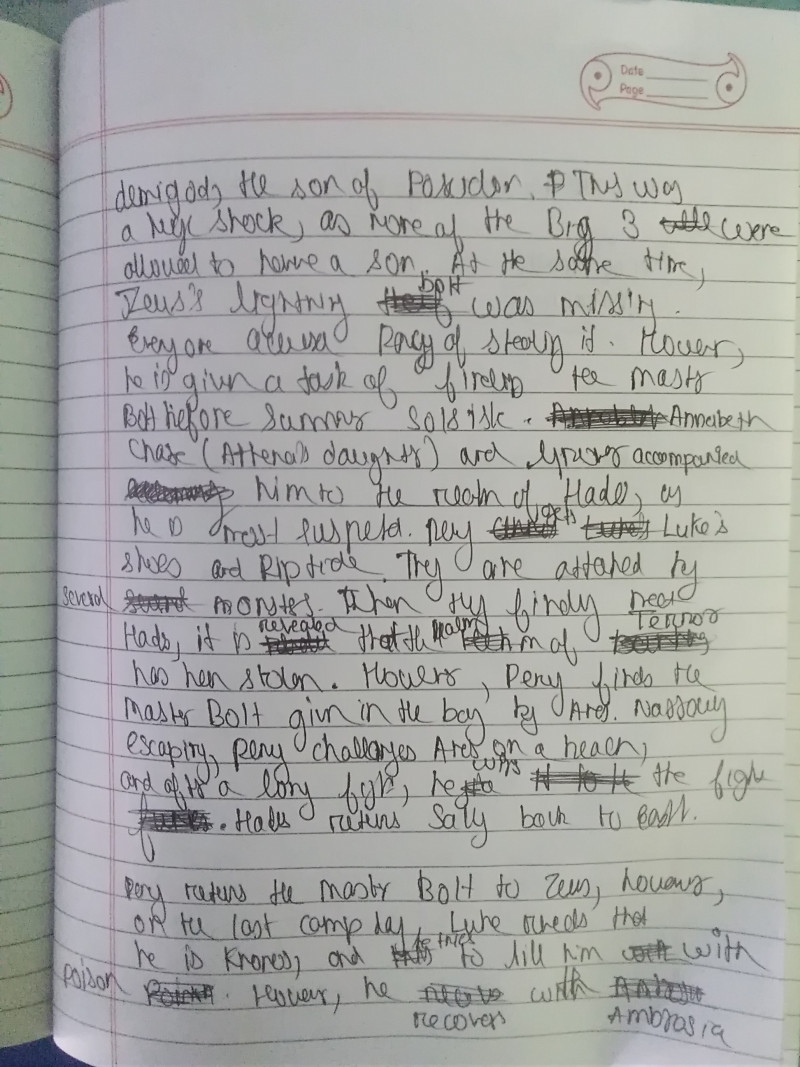 Date
Page
demigod, the son of Posiden. This was
a huge shock, as none of the Big 3 were
allowed to have a son. At the same time,
Zeus's lightning bolt was missin.
Everyone Percy of stealing it. Hower,
he is given a task of the mastr
Bolt before Summr Solstisk. Annabeth
Chase (Athena's daughtr) and accompanied
him to the realm of Hades, as
he is most suspetd. Percy gets Luke's
shoes and Riptide. They are attacked by
several monstes. When they finally meet
Hads, it is revealed that the realm of Terror
has ben stolen. Howevr, Percy finds the
Mastr Bolt givn in the bag by Ares. Narrowly
escaping, Percy challanges Ares on a beach,
and aftr a long figh, he wins the figh
. Hades returns Sally back to east.
Percy returns the Mastr Bolt to Zeus, howevr,
on the last camp day, Luke that
he is Kronos, and he tries to kill him with
poison. Hower, he recovers with Ambrosia